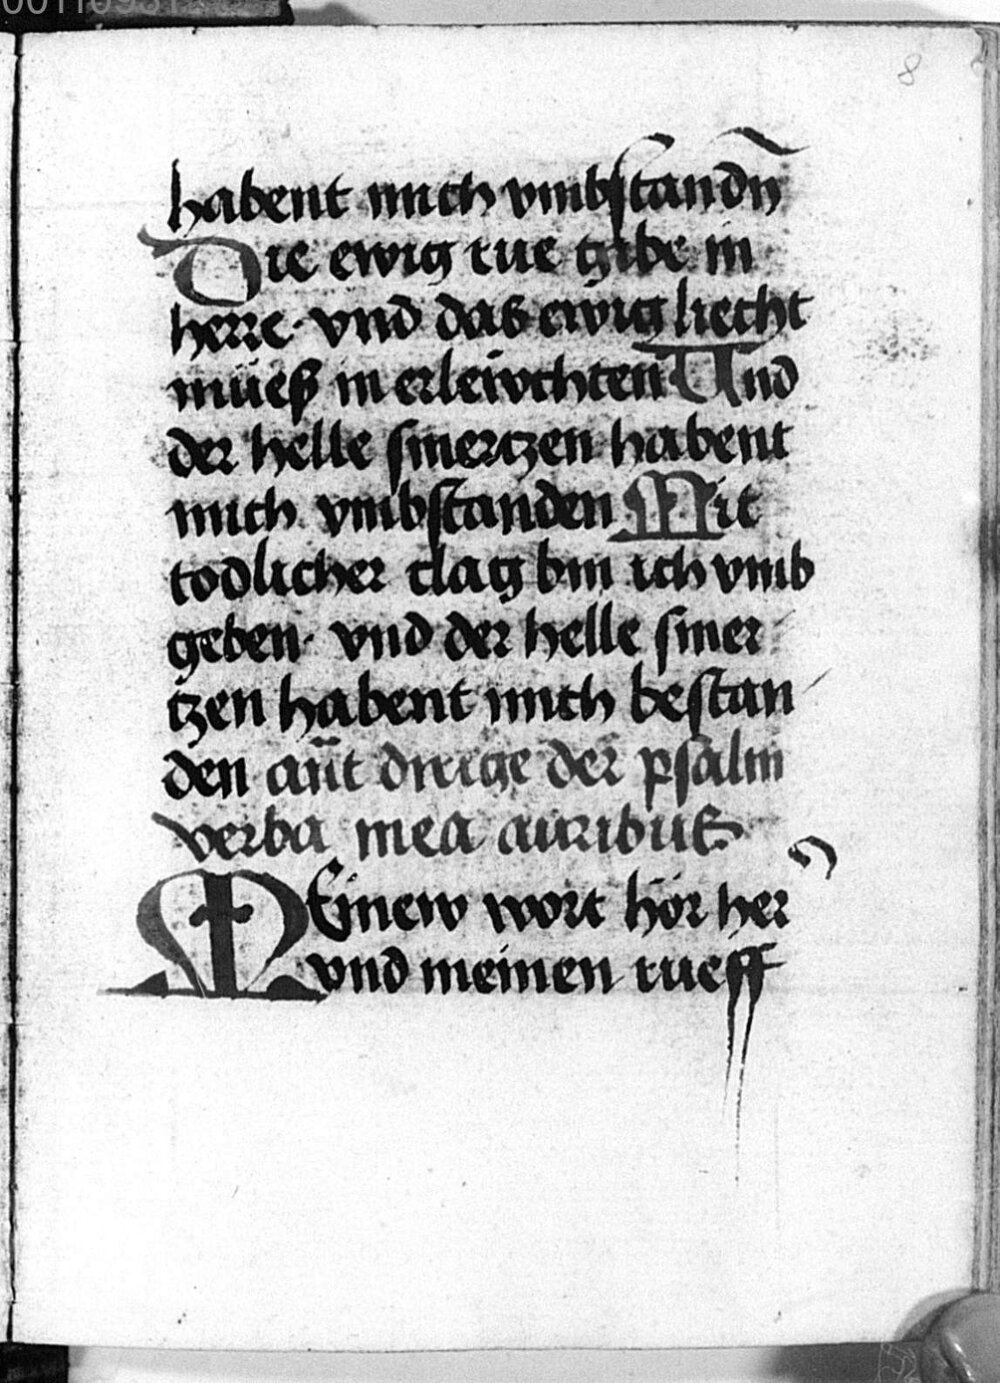 8
habent mich vmbstandn̄
Die ewig rue gibe in
herre · vnd das ewig liecht
müeß in erleiwchten Vnd
der helle smertzen habent
mich vmbstanden Mit
todlicher clag bin ich vmb
geben · vnd der helle smer
tzen habent mich bestan
den an̄t dirige der psalm
verba mea auribus
MEinew wort hör her
vnd meinen rueff